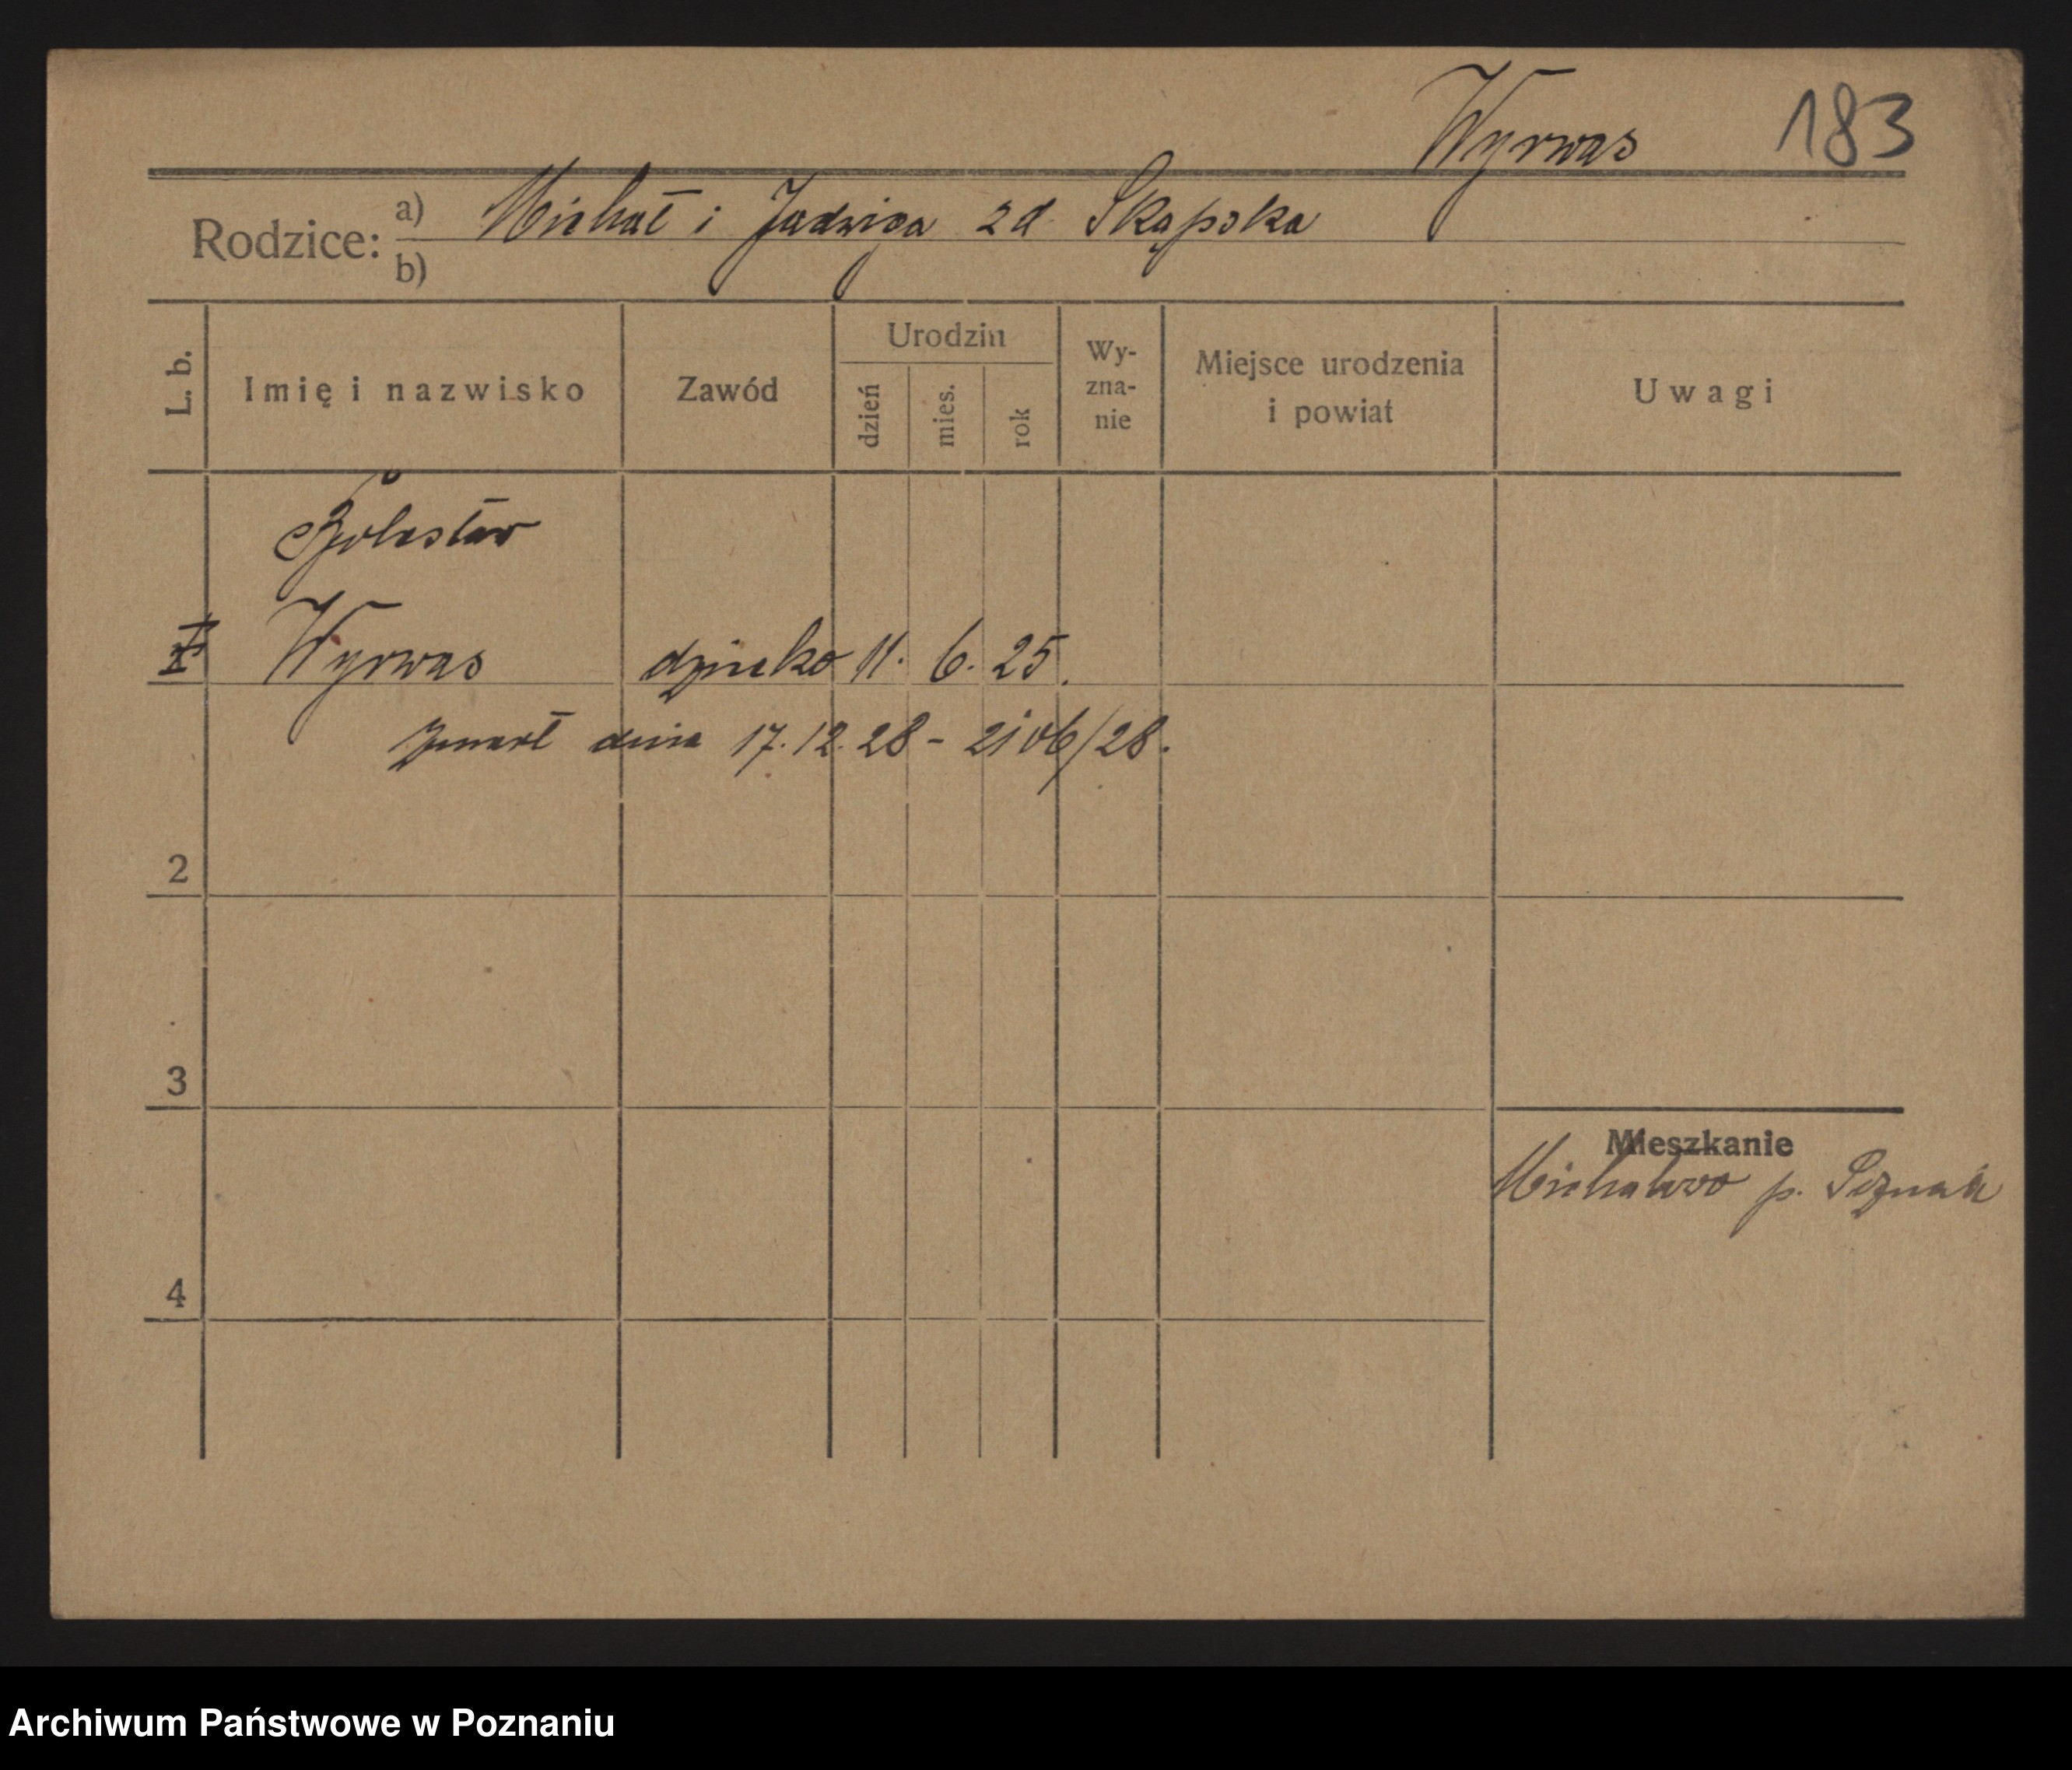 Wyrwas 183
Rodzice: a) Michał i Jadwiga zd. Skąpska
b)
L. b.
Imię i nazwisko
Zawód
Urodzin
dzień
mies.
rok
Wy-
zna-
nie
Miejsce urodzenia
i powiat
Uwagi
Bolesław
Wyrwas dziecko 11. 6. 25.
zmarł dnia 17.12.28 - 2106/28.
2
3
Mieszkanie
Michałowo p. Poznań
4
Archiwum Państwowe w Poznaniu